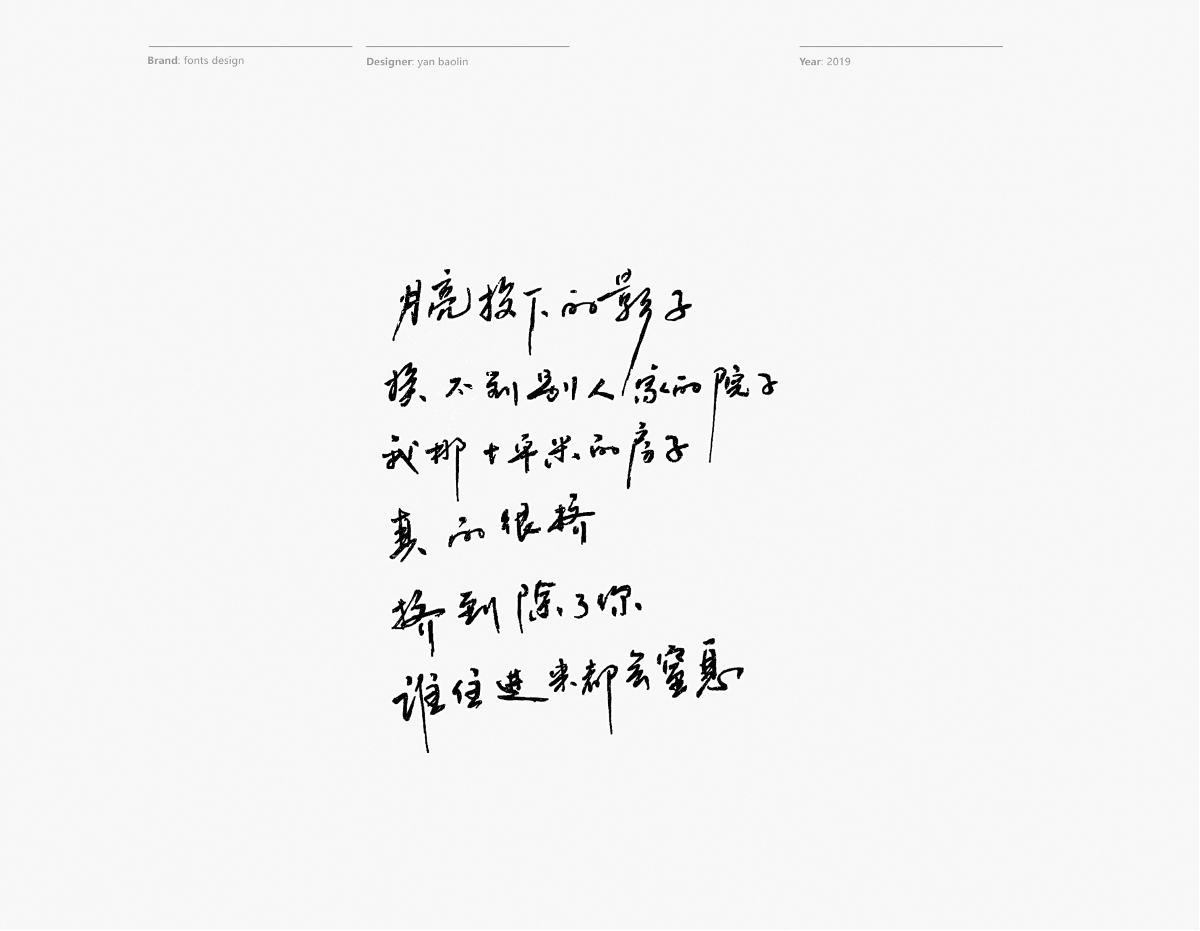 Brand: fonts design
Designer: yan baolin
Year: 2019
月亮投下的影子
挨不到别人家的院子
我那十平米的房子
真的很挤
挤到除了你
谁住进来都会窒息